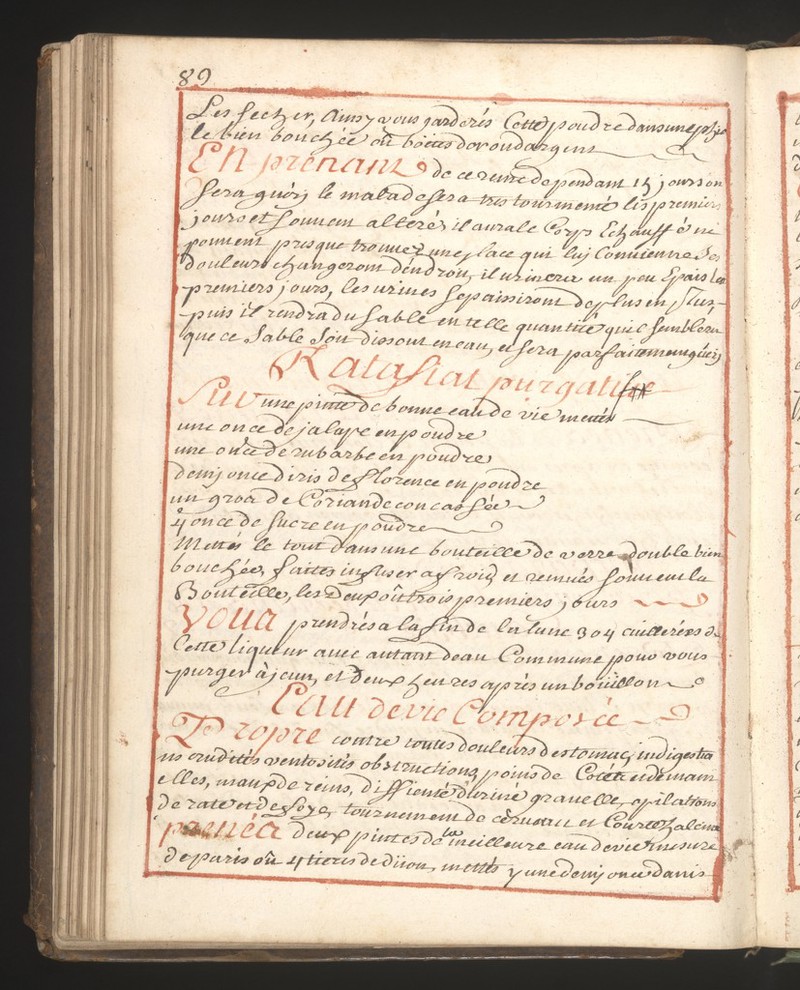 89
Les secher, Ainsy vous garderés Cette poudre dans une phio
le bien bouchée où boëtes dor ou dargens
En prenant de ce remede pendant 15 jours on
Sera guery le malade sera tres tourmenté les premiers
jours et Souvent alteré, il aura le Corps Echauffé ne
pouvent presque trouver une place qui luy Convienne Ses
douleurs changeront dendroit, il urinera un peu Epais les
premiers jours, les urines Sepaissiront de plus en plus
puis il rendra du Sable en telle quantité quil Semblera
que ce Sable Soit dissout en eau, et sera parfaitement guery
Ratafiat purgatif
Sur une pinte de bonne eau de vie mettés
une once de jalape en poudre
une once de rubarbe en poudre
demy once diris de florence en poudre
un gros de Coriande concassée
4 once de Sucre en poudre
Mettés le tout dans une bouteille de verre double bien
bouchée, faites infuser a froid et remués Souvent la
Bouteille, les Deux où trois premiers jours
Vous prendrés a la fin de la lune 3 o 4 cuillerées de
Cette liqueur avec autant deau Commune pour vous
purger à jeun, et deux heures après un boüillon
Eau de vie Composée
Propre contre toutes douleurs destomac, indigestio
ns crudités ventosités obstructions, points de Coté
elles, maux de reins, Difficulté durine gravelle, opilations
de rate et de foye, tournement de cerveau et Courte halaine
prenéz deux pintes de la meilleure eau de vie mesure
de paris où 4 tiers de dijon, mettés y une demy once danis